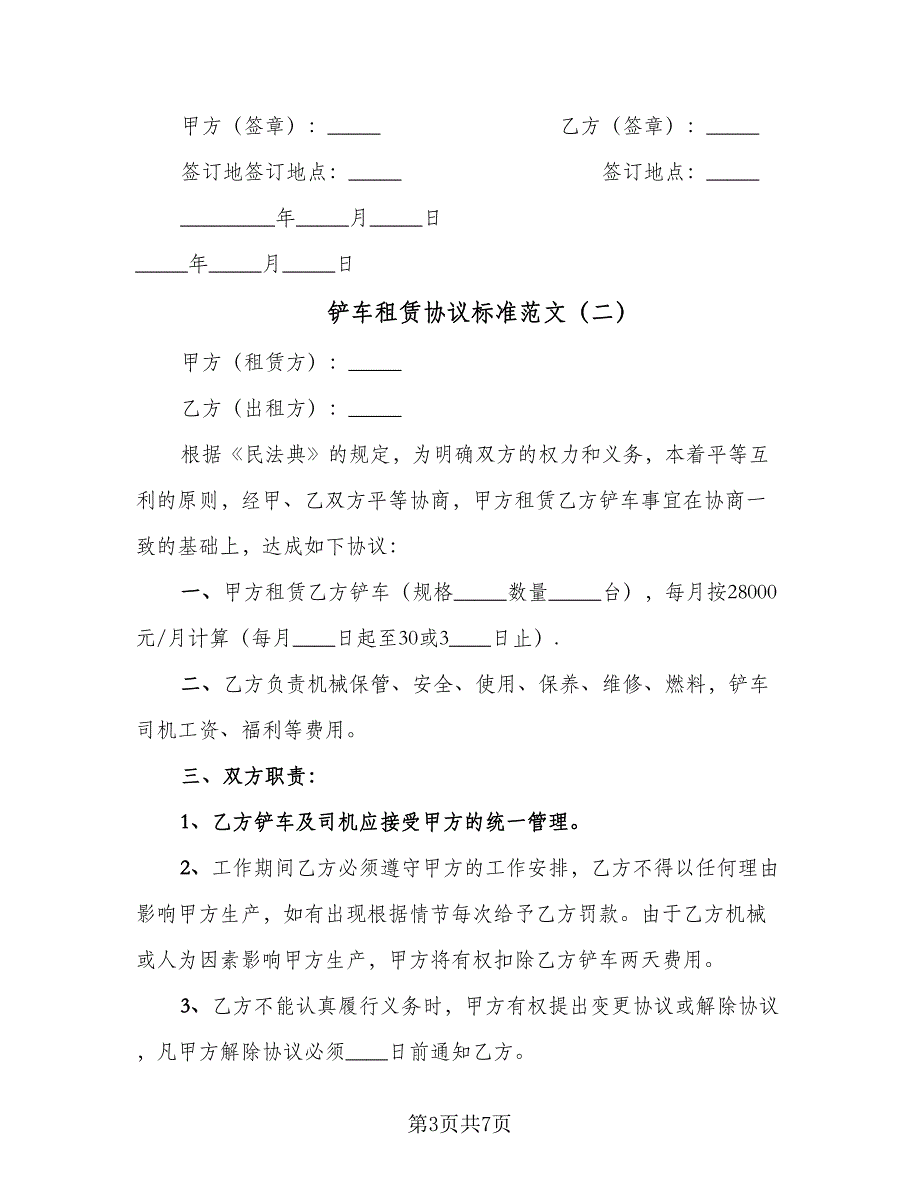 甲方（签章）：_____ 乙方（签章）：_____
签订地签订地点：_____ 签订地点：_____
_________年_____月_____日
_____年_____月_____日
铲车租赁协议标准范文（二）
甲方（租赁方）：_____
乙方（出租方）：_____
根据《民法典》的规定，为明确双方的权力和义务，本着平等互
利的原则，经甲、乙双方平等协商，甲方租赁乙方铲车事宜在协商一
致的基础上，达成如下协议：
一、甲方租赁乙方铲车（规格_____数量_____台），每月按28000
元/月计算（每月____日起至30或3____日止）.
二、乙方负责机械保管、安全、使用、保养、维修、燃料，铲车
司机工资、福利等费用。
三、双方职责：
1、乙方铲车及司机应接受甲方的统一管理。
2、工作期间乙方必须遵守甲方的工作安排，乙方不得以任何理由
影响甲方生产，如有出现根据情节每次给予乙方罚款。由于乙方机械
或人为因素影响甲方生产，甲方将有权扣除乙方铲车两天费用。
3、乙方不能认真履行义务时，甲方有权提出变更协议或解除协议
，凡甲方解除协议必须____日前通知乙方。
第3页共7页